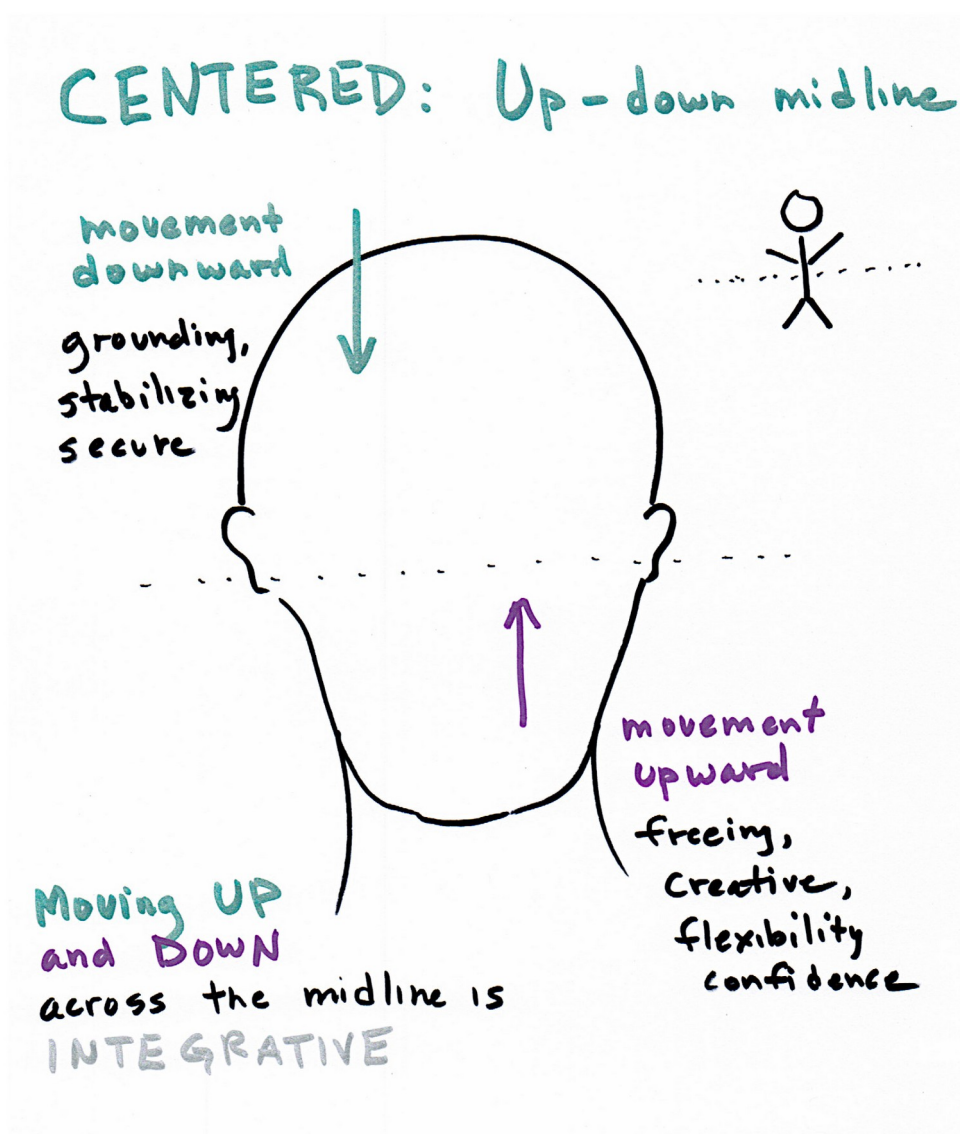 CENTERED: Up-down midline
movement
downward
grounding,
stabilizing
secure
movement
upward
freeing,
creative,
flexibility
confidence
Moving UP
and DOWN
across the midline is
INTEGRATIVE